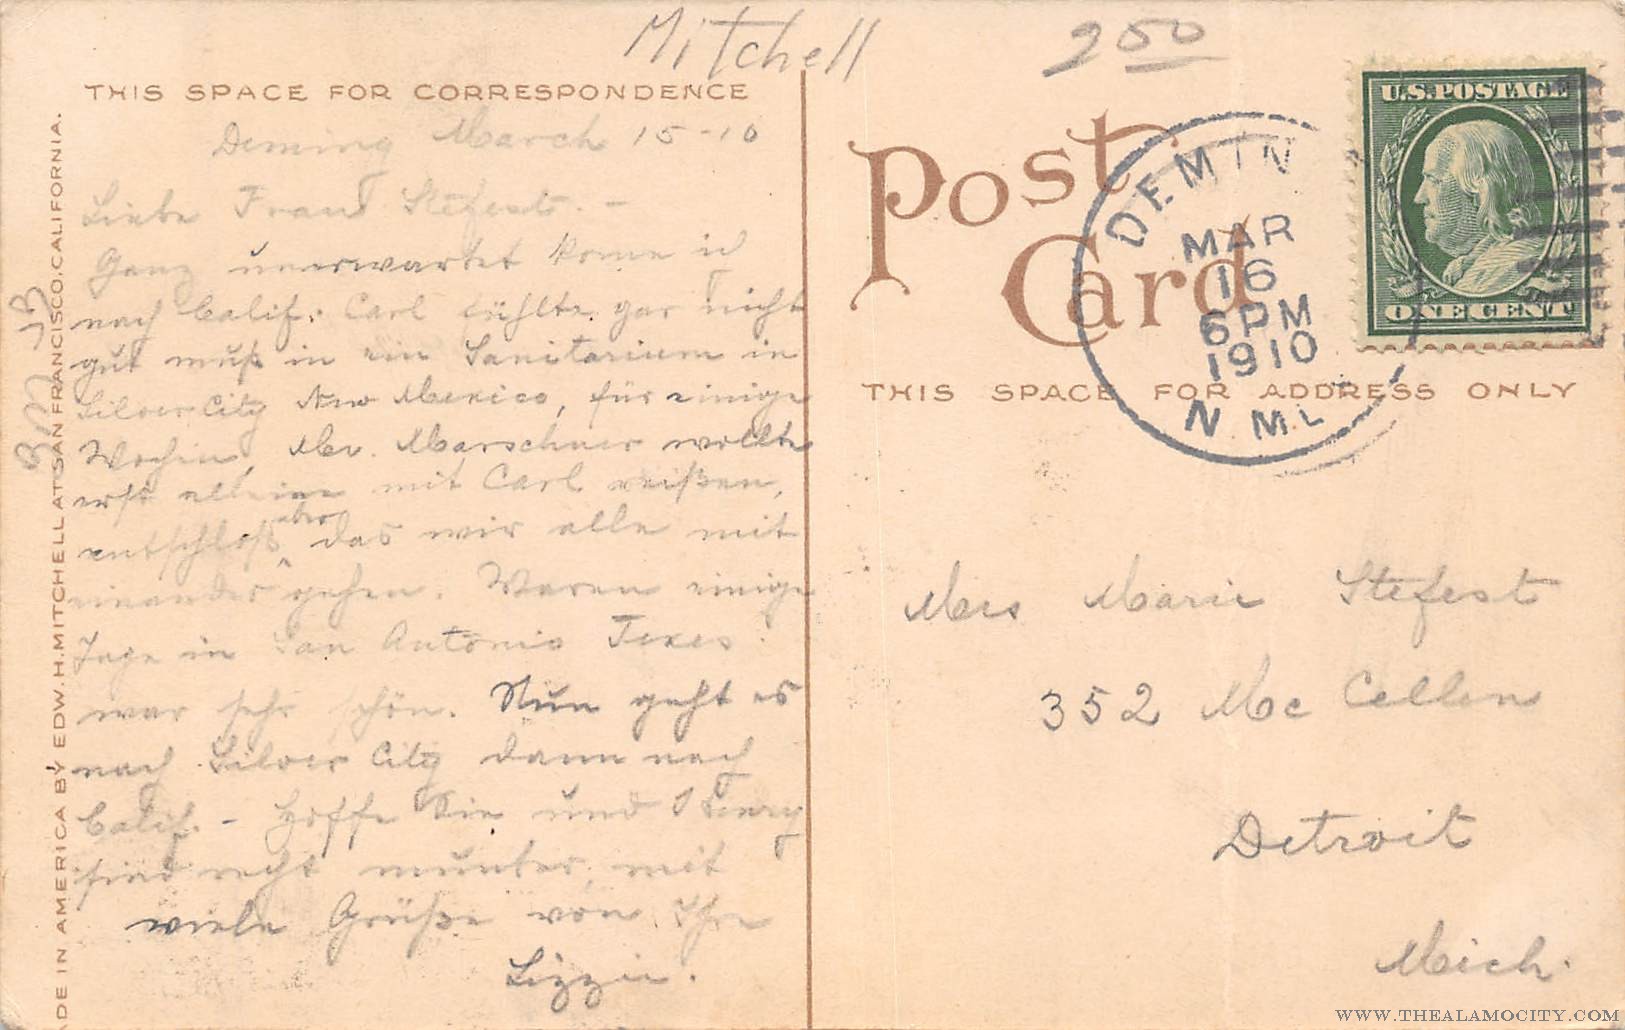 Mitchell
2 50
THIS SPACE FOR CORRESPONDENCE
Deming March 15-10
Liebe Frau Stefest. -
Ganz unerwartet kome ich
nach Calif. Carl fühlte gar nicht
gut muß in ein Sanitarium in
Silver City New Mexico, für einige
Wochen, Mr. Marschner wollte
erst alleine mit Carl reißen,
entschloß aber das wir alle mit
einander gehen. Waren einige
Tage in San Antonio Texas
war sehr schön. Nun geht es
nach Silver City dann nach
Calif. - Hoffe Sie und Henry
sind recht munter, mit
viele Grüße von Ihre
Lizzie.
MADE IN AMERICA BY EDW. H. MITCHELL AT SAN FRANCISCO, CALIFORNIA.
Post
Card
THIS SPACE FOR ADDRESS ONLY
DEMIN
MAR
16
6 PM
1910
N. M.
U.S. POSTAGE
ONE CENT
Mrs Marie Stefest
352 Mc Cellen
Detroit
Mich.
WWW.THEALAMOCITY.COM